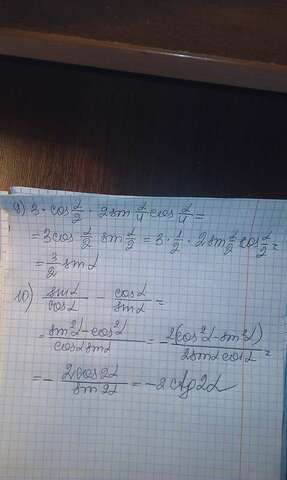 9) 3 · cos α/2 · 2 sin α/4 cos α/4 =
= 3 cos α/2 sin α/2 = 3 · 1/2 · 2 sin α/2 cos α/2 =
= 3/2 sin α
10) sin α/cos α - cos α/sin α =
= (sin²α - cos²α)/(cos α sin α) = 2(cos²α - sin²α)/(2 sin α cos α) =
= - 2 cos 2α/sin 2α = -2 ctg 2α